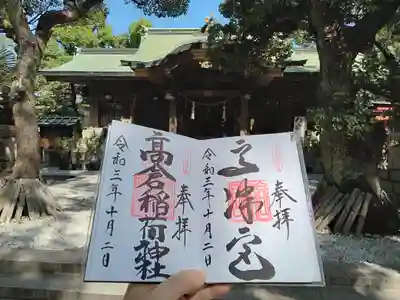 奉拝
令和三年十月二日
奉拝
高倉稲荷神社
令和三年十月二日